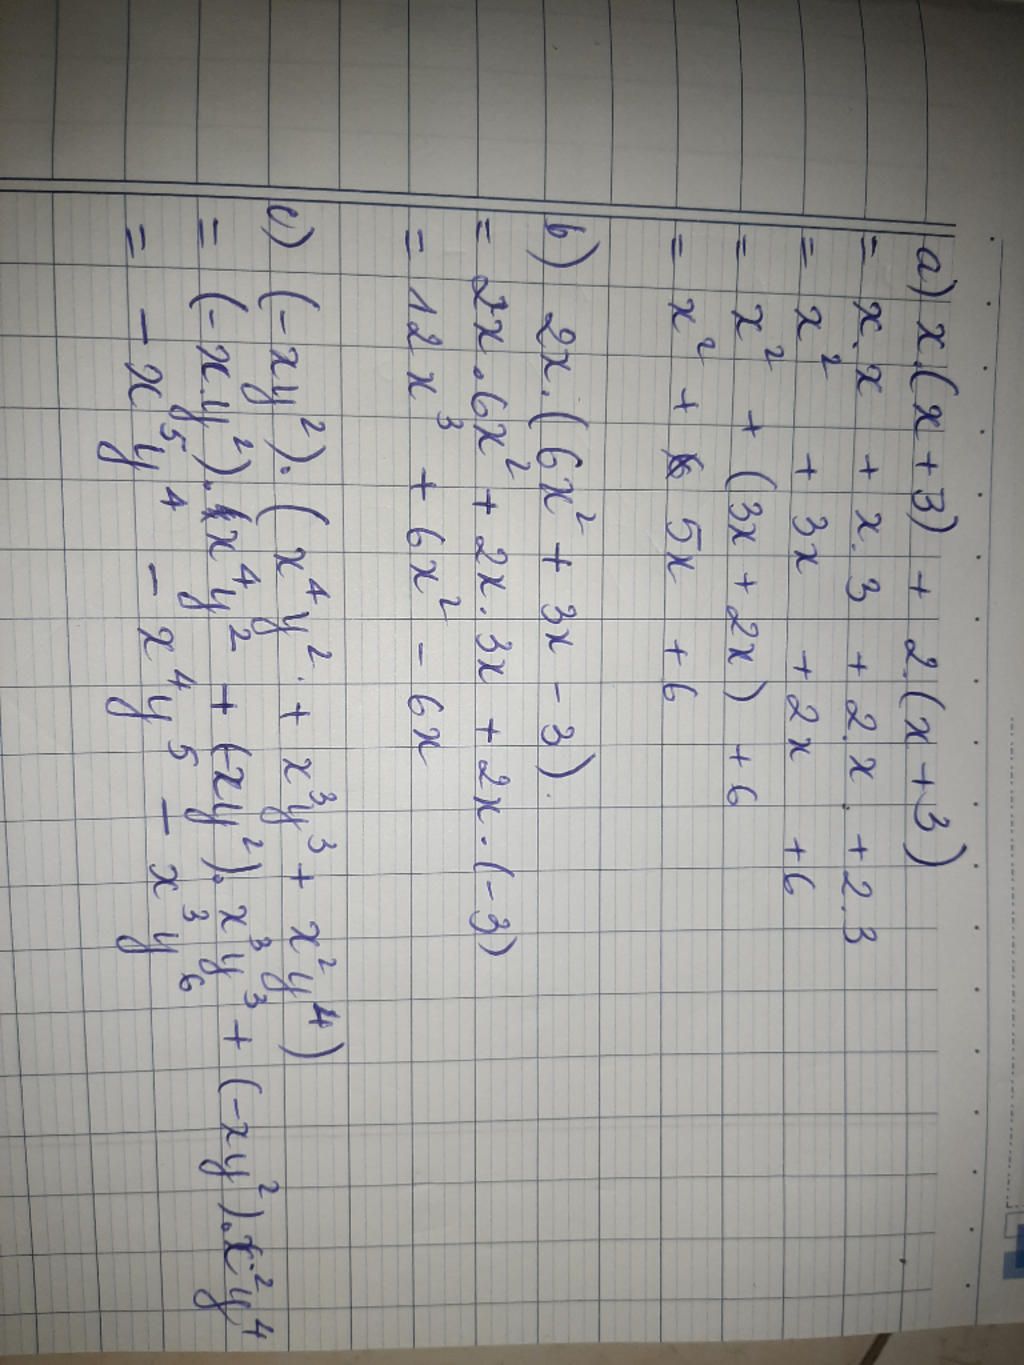 a) x.(x+3) + 2.(x+3)
= x.x + x.3 + 2.x + 2.3
= x² + 3x + 2x + 6
= x² + (3x + 2x) + 6
= x² + 5x + 6
b) 2x.(6x² + 3x - 3)
= 2x.6x² + 2x.3x + 2x.(-3)
= 12x³ + 6x² - 6x
c) (-xy²).(x⁴y² + x³y³ + x²y⁴)
= (-x.y²).x⁴y² + (-xy²).x³y³ + (-xy²).x²y⁴
= -x⁵y⁴ - x⁴y⁵ - x³y⁶